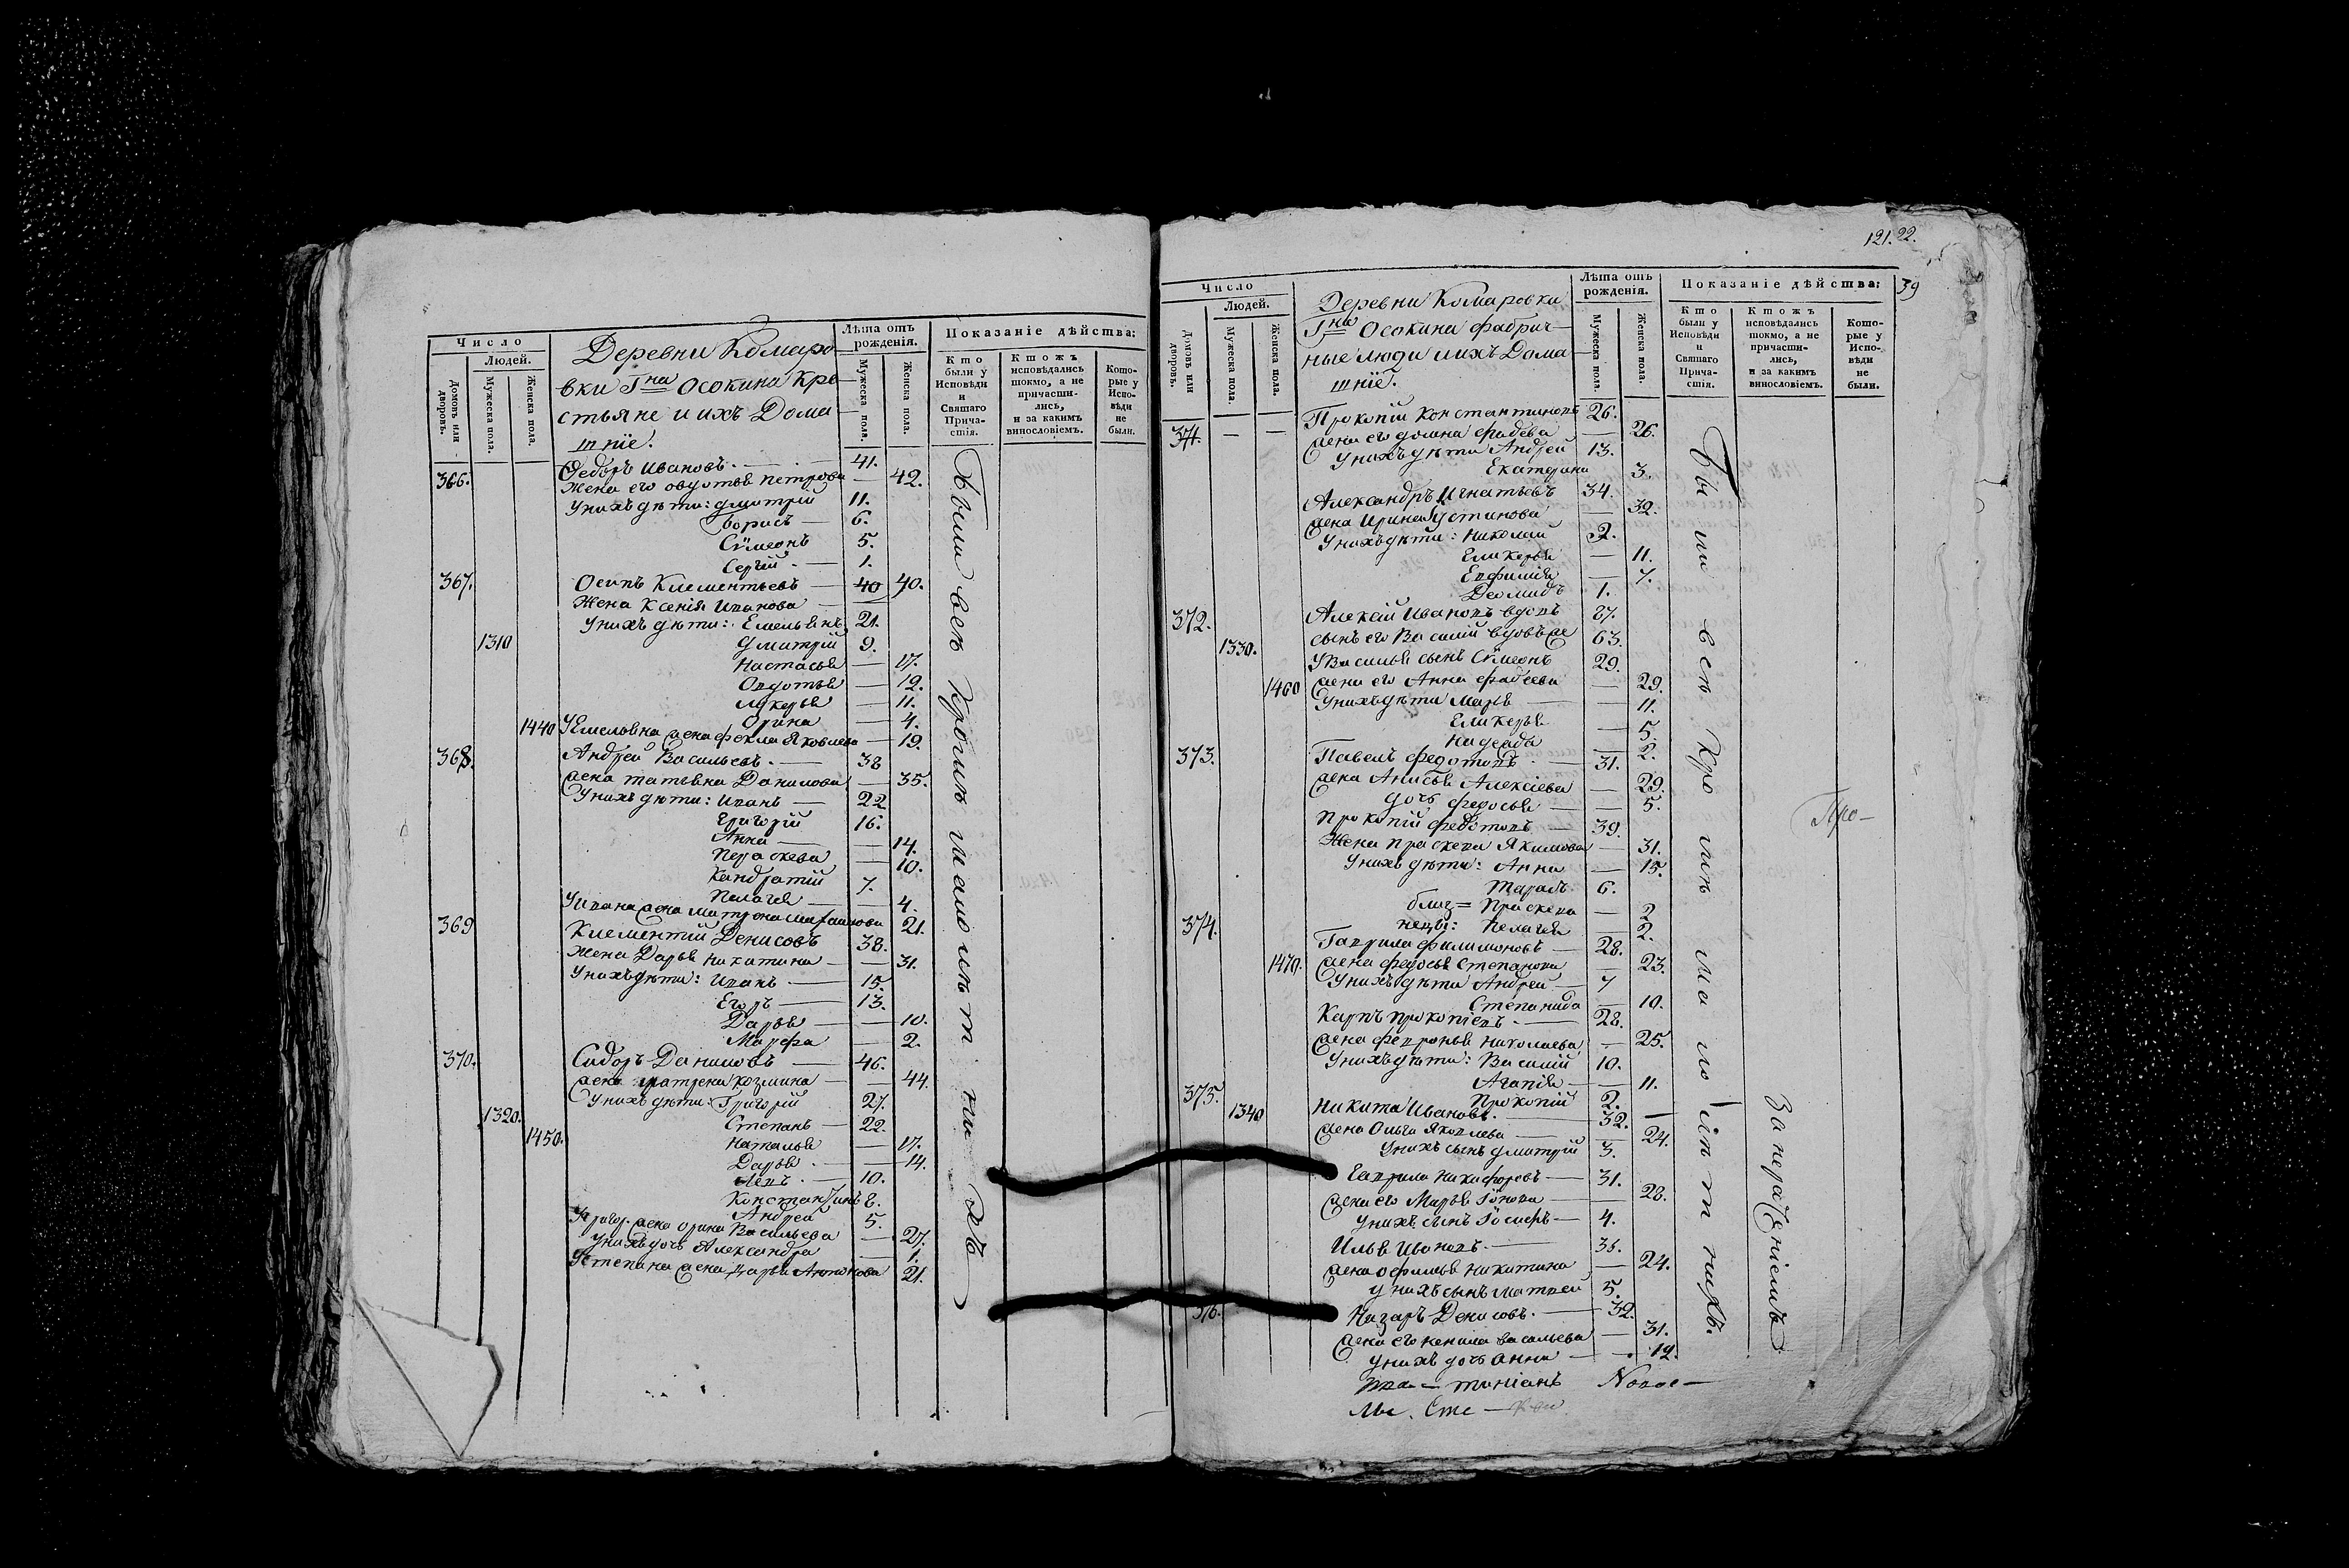 Число
Людей.
Домовъ или дворовъ.
Мужеска пола.
Женска пола.
Деревни Комаро-
вки Гна Осокина Кре-
стьяне и ихъ Дома-
шніе.
Лѣта отъ рожденія.
Мужеска пола.
Женска пола.
Показаніе дѣйства:
Кто были у Исповѣди и Святаго Прича-стія.
Ктожъ исповѣдались токмо, а не причасти-лись, и за какимъ винословіемъ.
Кото-рые у Испо-вѣди не были.
366. Федоръ Ивановъ. — 41.
Жена его Овдотья Петрова — 42.
У нихъ дѣти: Дмитрій 11.
Борисъ — 6.
Сѵмеонъ 5.
Сергій — 1.
367. Осипъ Клементьевъ — 40 40.
Жена Ксенія Иванова —
У нихъ дѣти: Емельянъ 21.
1310 Дмитрій 9.
Настасья — 17.
Овдотья — 12.
Лукерья — 11.
Орина — 4.
1440 У Емельяна жена Фекла Яковлева — 19.
368. Андрей Васильевъ. — 38
жена Татьяна Данилова — 35.
У нихъ дѣти: Иванъ — 22
Григорій 16.
Анна — 14.
Пераскева — 10.
Кандратій 7.
Пелагея — 4.
У Ивана жена Матрона 21.
369 Клементій Денисовъ 38.
Жена Дарья Никитина — 31.
У нихъ дѣти: Иванъ — 15.
Егоръ — 13.
Дарья — 10.
Марфа — 2.
370. Сидоръ Даниловъ — 46.
жена Матрена Козмина — 44.
У нихъ дѣти: Григорій 27.
1320. Степанъ — 22.
1450. Наталья — 17.
Дарья — 14.
Левъ — 10.
Константинъ 8.
Андрей 5.
У Григор. жена Орина Васильева — 27.
У нихъ дочь Александра — 1.
У Степана жена Дарья Антонова 21.
Были всѣ кромѣ малолѣтнихъ
121. 22.
39
Число
Людей.
Домовъ или дворовъ.
Мужеска пола.
Женска пола.
Деревни Комаровки
Гна Осокина фабрич-
ные люди и ихъ Дома-
шніе.
Лѣта отъ рожденія.
Мужеска пола.
Женска пола.
Показаніе дѣйства:
Кто были у Исповѣди и Святаго Прича-стія.
Ктожъ исповѣдались токмо, а не причасти-лись, и за какимъ винословіемъ.
Кото-рые у Испо-вѣди не были.
371. — — Прокопій Константиновъ 26.
жена его Домна Фадѣева — 26.
У нихъ дѣти Андрей 13.
Екатерина 3.
Александръ Игнатьевъ 34.
жена Ирина Устинова — 32.
У нихъ дѣти: Николай 2.
Гликерья — 11.
Евфимія — 7.
Деомидъ 1.
372. Алексій Ивановъ вдовъ 87.
1330. сынъ его Василій вдовъ же 63.
У Василья сынъ Сѵмеонъ 29.
1460 жена его Анна Фадѣева — 29.
У нихъ дѣти Марья — 11.
Гликерья — 5.
Надежда — 2.
373. Павелъ Федотовъ — 31.
жена Анисья Алексіева — 29.
дочь Федосья — 5.
Прокопій Федотовъ — 39.
Жена Праскева Якимова — 31.
У нихъ дѣти: Анна — 15.
Тарасъ 6.
близ= Праскева — 2
нецы: Пелагея — 2.
374. Гаврила Филимоновъ — 28.
1470. жена Федосья Степанова — 23.
У нихъ дѣти Андрей — 7
Степанида — 10.
Карпъ Прокопіевъ — 28.
жена Февронья Николаева — 25.
У нихъ дѣти: Василій 10.
Агапія — 11.
Прокопій 2.
375. 1340 Никита Ивановъ. — 32.
жена Ольга Яковлева — 24.
У нихъ сынъ Дмитрій 3.
Гаврила Никифоровъ — 31.
жена его Марья — 28.
У нихъ сынъ — 4.
Илья Ивановъ. — 36.
жена Офимья Никитина — 24.
У нихъ сынъ Матвей 5.
376. Назаръ Денисовъ. — 32.
жена его Васильева — 31.
У нихъ дочь Анна — 12.
Были всѣ кромѣ малолѣтнихъ.
За нерадѣніемъ
Про-